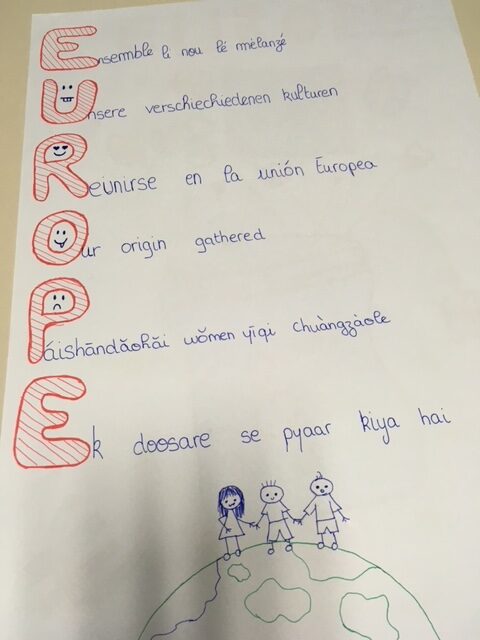 Ensemble li nou lé mélanzé
Unsere verschiechiedenen kulturen
Reunirse en la unión Europea
Our origin gathered
Páishāndǎohǎi wǒmen yīqi chuàngzàole
Ek doosare se pyaar kiya hai